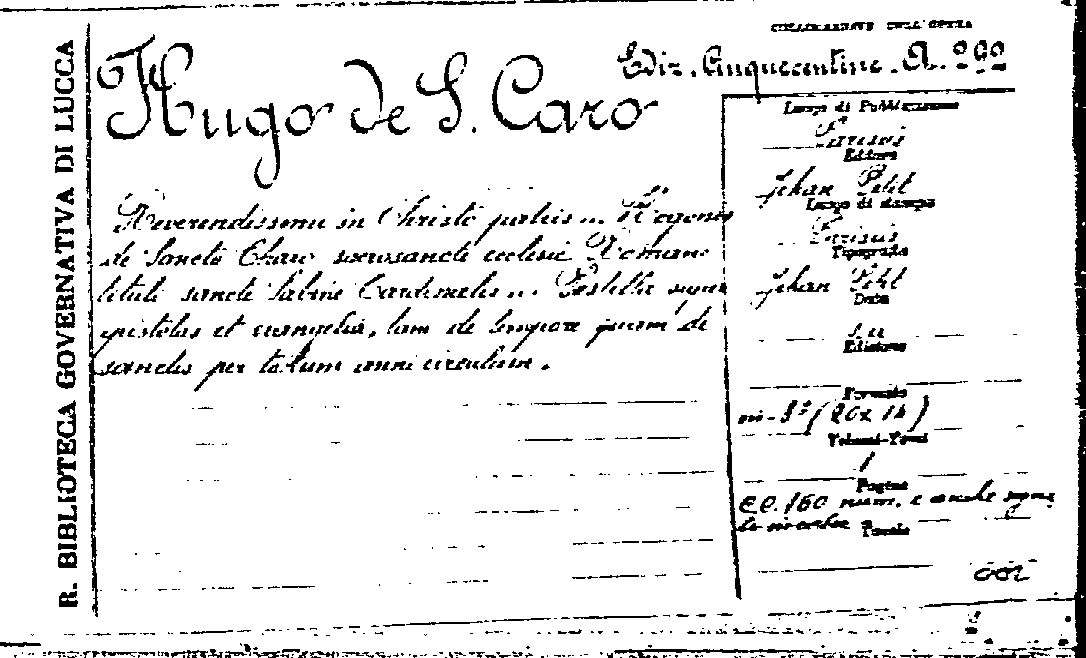 R. BIBLIOTECA GOVERNATIVA DI LUCCA
COLLOCAZIONE DELL'OPERA
Ediz. Cinquecentine. A. 292
Hugo de S. Caro
Reverendissimi in Christo patris ... Hugonis
de Sancto Charo sacrosancte ecclesie Romane
tituli sancte Sabine Cardinalis ... Postilla super
epistolas et evangelia, tam de tempore quam de
sanctis per totum anni circulum.
Luogo di Pubblicazione
Parisiis
Editore
Jehan Petit
Luogo di stampa
Parisiis
Tipografo
Jehan Petit
Data
s.a.
Edizione
Formato
in-8° (20x14)
Volumi-Tomi
1
Pagine
cc. 160 num. e anche
Tavole